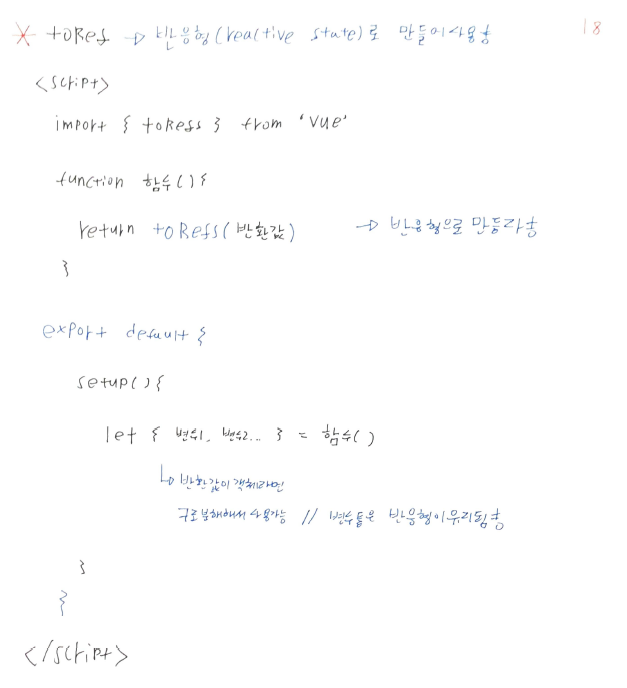 * toRef → 반응형(reactive state)로 만들어사용함 18
<script>
import { toRefs } from 'vue'
function 함수(){
return toRefs(반환값) → 반응형으로 만들라함
}
export default {
setup(){
let { 변수1, 변수2... } = 함수()
↳ 반환값이 객체라면
구로분해해서 사용가능 // 변수들은 반응형이유지됨
}
}
</script>